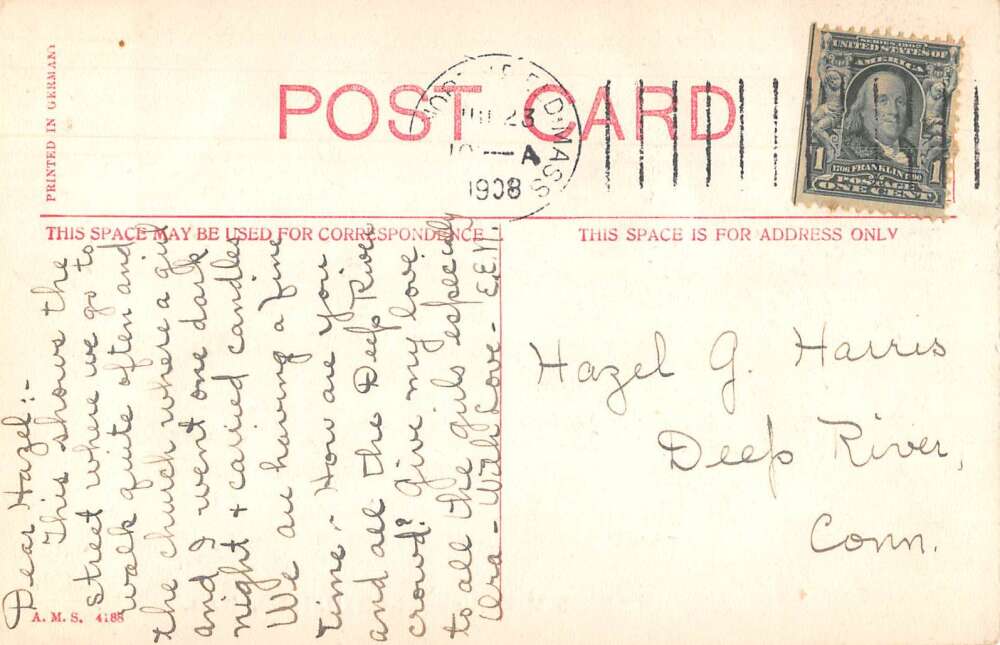 PRINTED IN GERMANY
POST CARD
D. MASS.
23
A
1908
SERIES 1902
UNITED STATES OF
AMERICA
1 1
1706 FRANKLIN 1790
POSTAGE
ONE CENT
THIS SPACE MAY BE USED FOR CORRESPONDENCE
THIS SPACE IS FOR ADDRESS ONLY
Dear Hazel:-
This shows the
street where we go to
walk quite often and
the church where a girl
and I went one dark
night + carried candles
We are having a fine
time.- How are you
and all the Deep River
crowd? Give my love
to all the girls especially
Ura - With Love - E.E.W.
Hazel G. Harris
Deep River,
Conn.
A. M. S. 4188